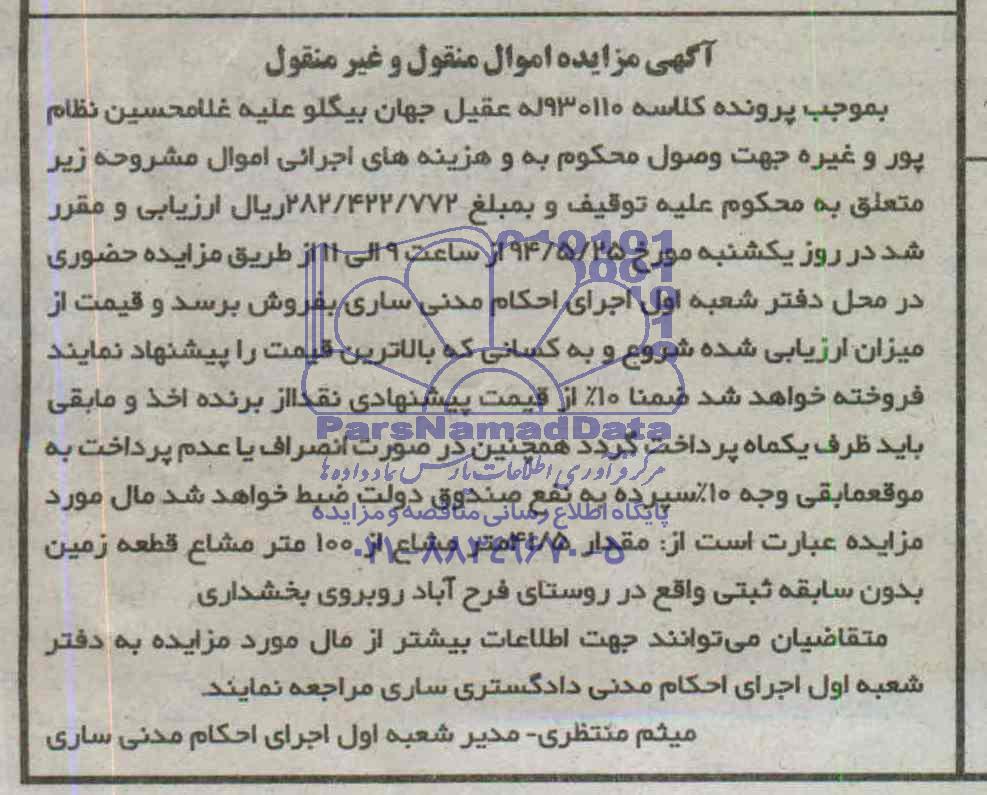 آگهی مزایده اموال منقول و غیر منقول
بموجب پرونده کلاسه ۹۳۰۱۱۰له عقیل جهان بیگلو علیه غلامحسین نظام
پور و غیره جهت وصول محکوم به و هزینه های اجرائی اموال مشروحه زیر
متعلق به محکوم علیه توقیف و بمبلغ ۲۸۲/۴۲۲/۷۷۲ریال ارزیابی و مقرر
شد در روز یکشنبه مورخ ۹۴/۵/۲۵ از ساعت ۹ الی ۱۱ از طریق مزایده حضوری
در محل دفتر شعبه اول اجرای احکام مدنی ساری بفروش برسد و قیمت از
میزان ارزیابی شده شروع و به کسانی که بالاترین قیمت را پیشنهاد نمایند
فروخته خواهد شد ضمنا ۱۰٪ از قیمت پیشنهادی نقدااز برنده اخذ و مابقی
ParsNamadData
باید ظرف یکماه پرداخت گردد همچنین در صورت انصراف یا عدم پرداخت به
مرکز فرآوری اطلاعات پارس نماد داده ها
موقعمابقی وجه ۱۰٪سپرده به نفع صندوق دولت ضبط خواهد شد مال مورد
پایگاه اطلاع رسانی مناقصه و مزایده
مزایده عبارت است از: مقدار متر مشاع از ۱۰۰ متر مشاع قطعه زمین
۰۲۱-۸۸۳۴۹۶۷۰-۵
بدون سابقه ثبتی واقع در روستای فرح آباد روبروی بخشداری
متقاضیان می‌توانند جهت اطلاعات بیشتر از مال مورد مزایده به دفتر
شعبه اول اجرای احکام مدنی دادگستری ساری مراجعه نمایند.
میثم منتظری- مدیر شعبه اول اجرای احکام مدنی ساری